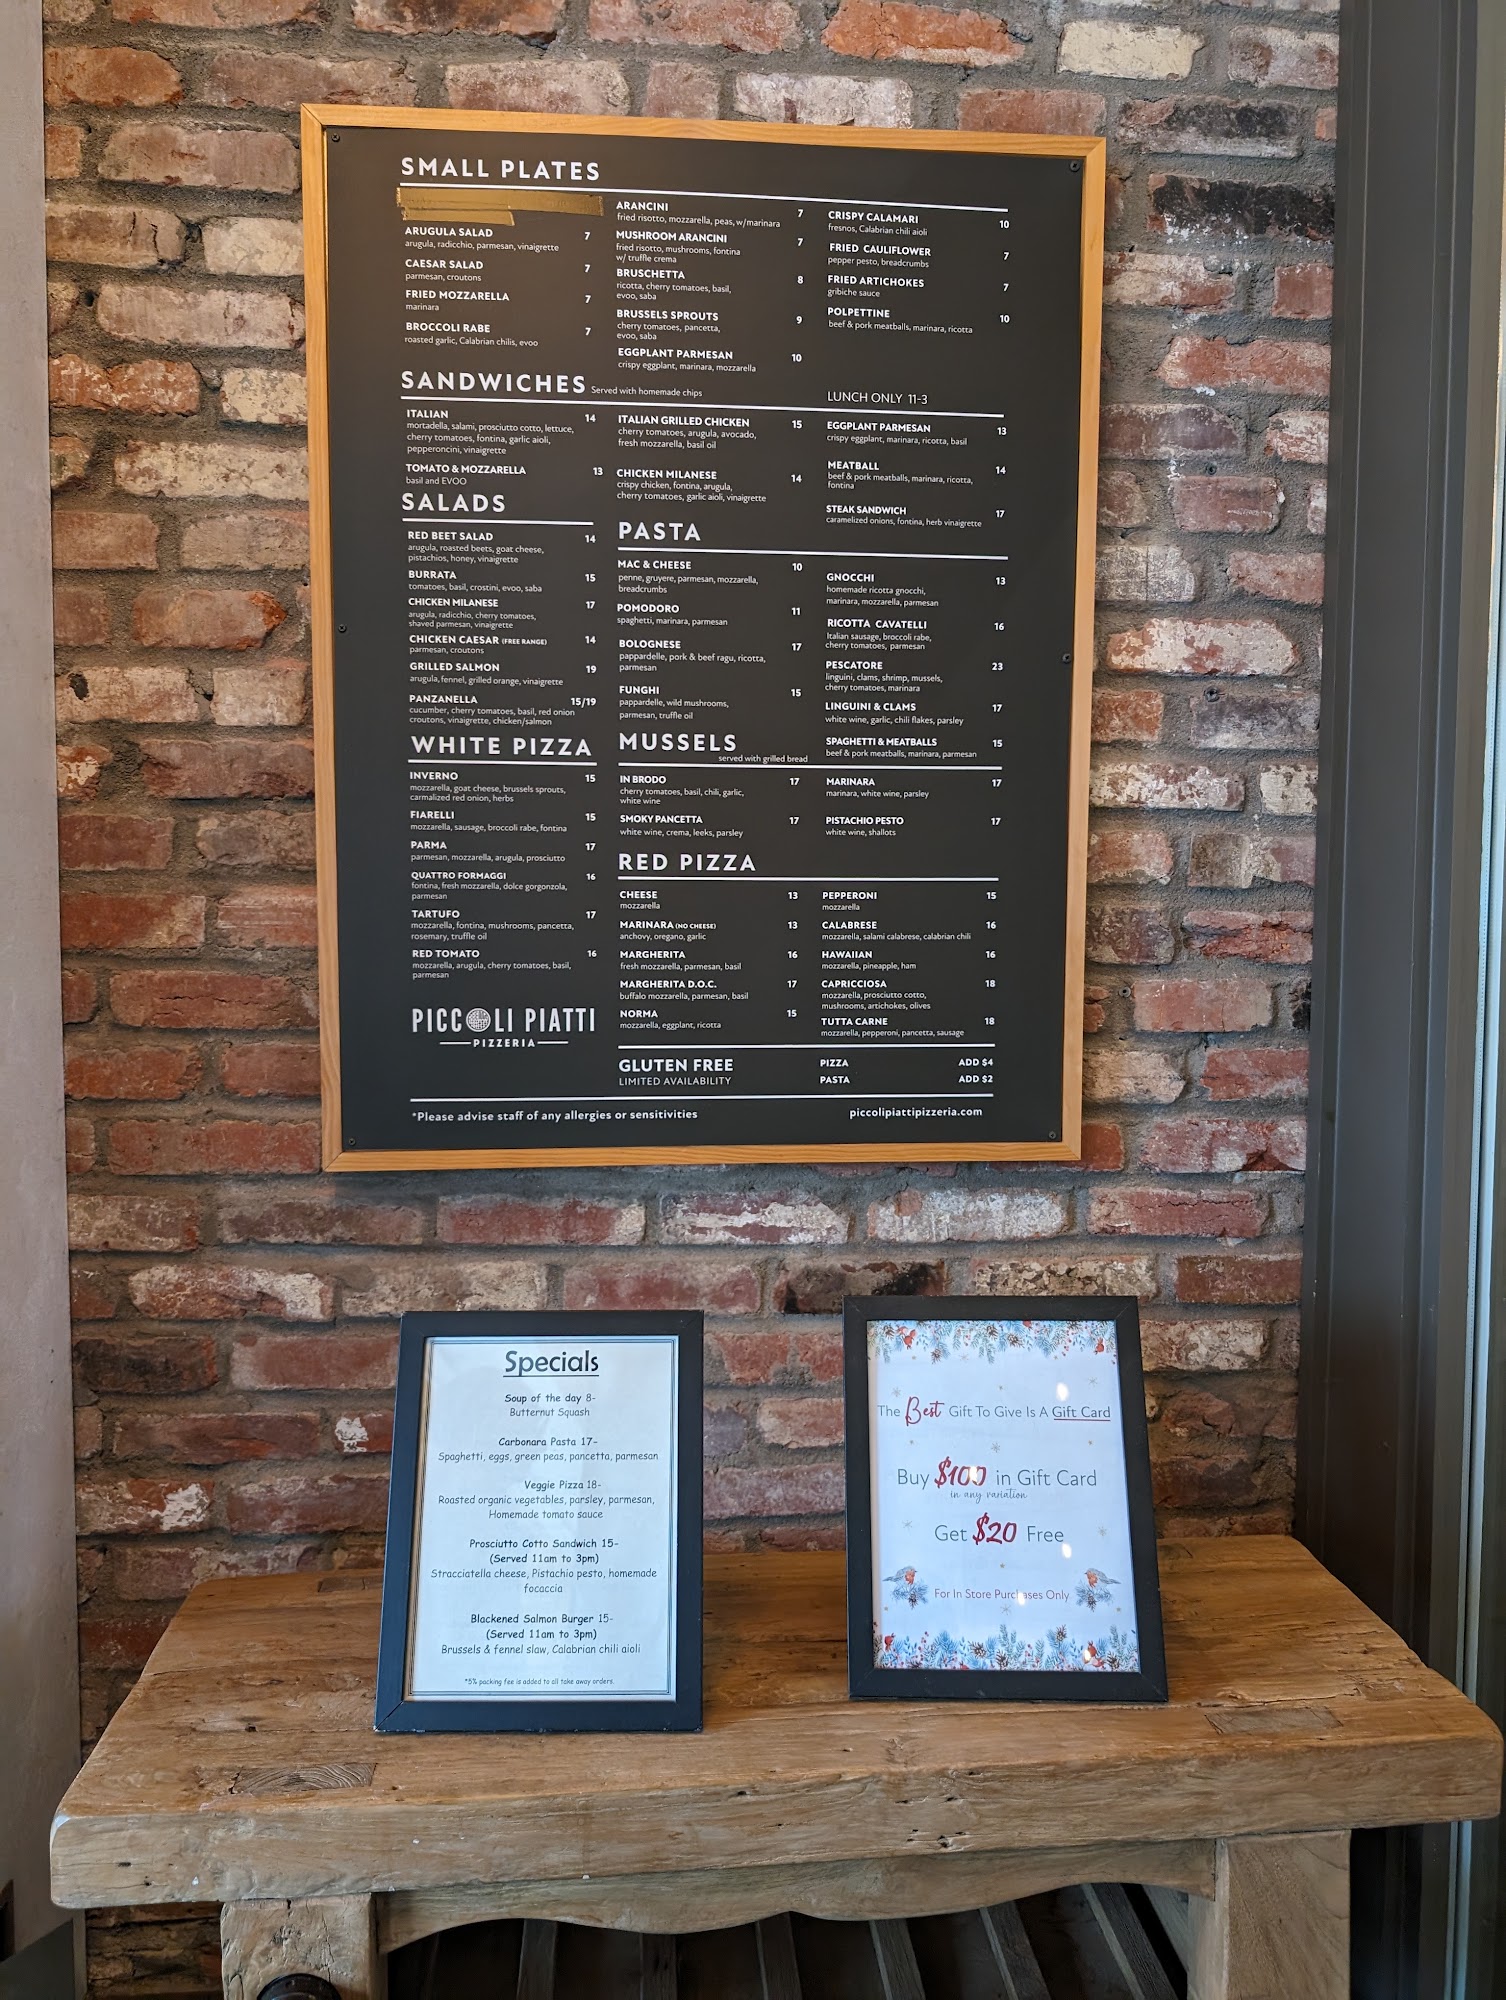 SMALL PLATES
ARUGULA SALAD 7
arugula, radicchio, parmesan, vinaigrette
CAESAR SALAD 7
parmesan, croutons
FRIED MOZZARELLA 7
marinara
BROCCOLI RABE 7
roasted garlic, Calabrian chilis, evoo
ARANCINI 7
fried risotto, mozzarella, peas, w/marinara
MUSHROOM ARANCINI 7
fried risotto, mushrooms, fontina
w/ truffle crema
BRUSCHETTA 8
ricotta, cherry tomatoes, basil,
evoo, saba
BRUSSELS SPROUTS 9
cherry tomatoes, pancetta,
evoo, saba
EGGPLANT PARMESAN 10
crispy eggplant, marinara, mozzarella
CRISPY CALAMARI 10
fresnos, Calabrian chili aioli
FRIED CAULIFLOWER 7
pepper pesto, breadcrumbs
FRIED ARTICHOKES 7
gribiche sauce
POLPETTINE 10
beef & pork meatballs, marinara, ricotta
SANDWICHES Served with homemade chips
LUNCH ONLY 11-3
ITALIAN 14
mortadella, salami, prosciutto cotto, lettuce,
cherry tomatoes, fontina, garlic aioli,
pepperoncini, vinaigrette
TOMATO & MOZZARELLA 13
basil and EVOO
ITALIAN GRILLED CHICKEN 15
cherry tomatoes, arugula, avocado,
fresh mozzarella, basil oil
CHICKEN MILANESE 14
crispy chicken, fontina, arugula,
cherry tomatoes, garlic aioli, vinaigrette
EGGPLANT PARMESAN 13
crispy eggplant, marinara, ricotta, basil
MEATBALL 14
beef & pork meatballs, marinara, ricotta,
fontina
STEAK SANDWICH 17
caramelized onions, fontina, herb vinaigrette
SALADS
RED BEET SALAD 14
arugula, roasted beets, goat cheese,
pistachios, honey, vinaigrette
BURRATA 15
tomatoes, basil, crostini, evoo, saba
CHICKEN MILANESE 17
arugula, radicchio, cherry tomatoes,
shaved parmesan, vinaigrette
CHICKEN CAESAR (FREE RANGE) 14
parmesan, croutons
GRILLED SALMON 19
arugula, fennel, grilled orange, vinaigrette
PANZANELLA 15/19
cucumber, cherry tomatoes, basil, red onion
croutons, vinaigrette, chicken/salmon
PASTA
MAC & CHEESE 10
penne, gruyere, parmesan, mozzarella,
breadcrumbs
POMODORO 11
spaghetti, marinara, parmesan
BOLOGNESE 17
pappardelle, pork & beef ragu, ricotta,
parmesan
FUNGHI 15
pappardelle, wild mushrooms,
parmesan, truffle oil
GNOCCHI 13
homemade ricotta gnocchi,
marinara, mozzarella, parmesan
RICOTTA CAVATELLI 16
Italian sausage, broccoli rabe,
cherry tomatoes, parmesan
PESCATORE 23
linguini, clams, shrimp, mussels,
cherry tomatoes, marinara
LINGUINI & CLAMS 17
white wine, garlic, chili flakes, parsley
SPAGHETTI & MEATBALLS 15
beef & pork meatballs, marinara, parmesan
WHITE PIZZA
INVERNO 15
mozzarella, goat cheese, brussels sprouts,
carmalized red onion, herbs
FIARELLI 15
mozzarella, sausage, broccoli rabe, fontina
PARMA 17
parmesan, mozzarella, arugula, prosciutto
QUATTRO FORMAGGI 16
fontina, fresh mozzarella, dolce gorgonzola,
parmesan
TARTUFO 17
mozzarella, fontina, mushrooms, pancetta,
rosemary, truffle oil
RED TOMATO 16
mozzarella, arugula, cherry tomatoes, basil,
parmesan
MUSSELS
served with grilled bread
IN BRODO 17
cherry tomatoes, basil, chili, garlic,
white wine
SMOKY PANCETTA 17
white wine, crema, leeks, parsley
MARINARA 17
marinara, white wine, parsley
PISTACHIO PESTO 17
white wine, shallots
RED PIZZA
CHEESE 13
mozzarella
MARINARA (NO CHEESE) 13
anchovy, oregano, garlic
MARGHERITA 16
fresh mozzarella, parmesan, basil
MARGHERITA D.O.C. 17
buffalo mozzarella, parmesan, basil
NORMA 15
mozzarella, eggplant, ricotta
PEPPERONI 15
mozzarella
CALABRESE 16
mozzarella, salami calabrese, calabrian chili
HAWAIIAN 16
mozzarella, pineapple, ham
CAPRICCIOSA 18
mozzarella, prosciutto cotto,
mushrooms, artichokes, olives
TUTTA CARNE 18
mozzarella, pepperoni, pancetta, sausage
PICCOLI PIATTI
PIZZERIA
GLUTEN FREE
LIMITED AVAILABILITY
PIZZA ADD $4
PASTA ADD $2
*Please advise staff of any allergies or sensitivities
piccolipiattipizzeria.com
Specials
Soup of the day 8-
Butternut Squash
Carbonara Pasta 17-
Spaghetti, eggs, green peas, pancetta, parmesan
Veggie Pizza 18-
Roasted organic vegetables, parsley, parmesan,
Homemade tomato sauce
Prosciutto Cotto Sandwich 15-
(Served 11am to 3pm)
Stracciatella cheese, Pistachio pesto, homemade
focaccia
Blackened Salmon Burger 15-
(Served 11am to 3pm)
Brussels & fennel slaw, Calabrian chili aioli
*5% packing fee is added to all take away orders.
The Best Gift To Give Is A Gift Card
Buy $100 in Gift Card
in any variation
Get $20 Free
For In Store Purchases Only